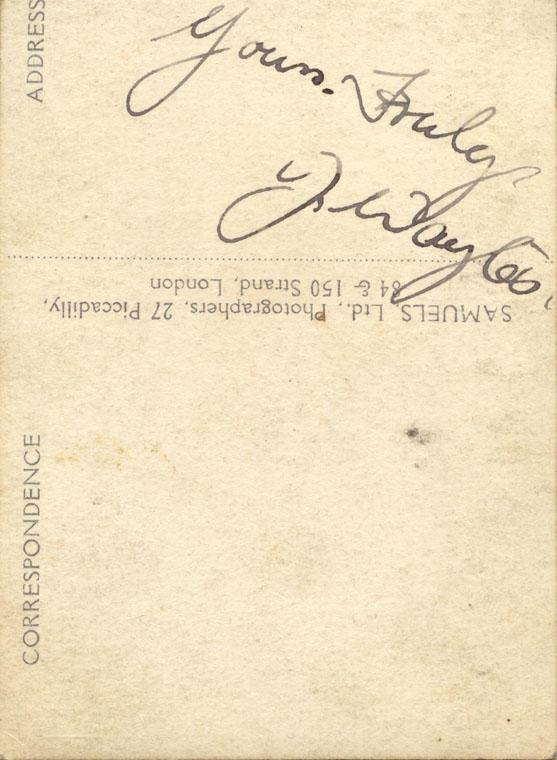 ADDRESS
Yours. Truly
SAMUELS, Ltd., Photographers, 27 Piccadilly,
84 & 150 Strand, London
CORRESPONDENCE